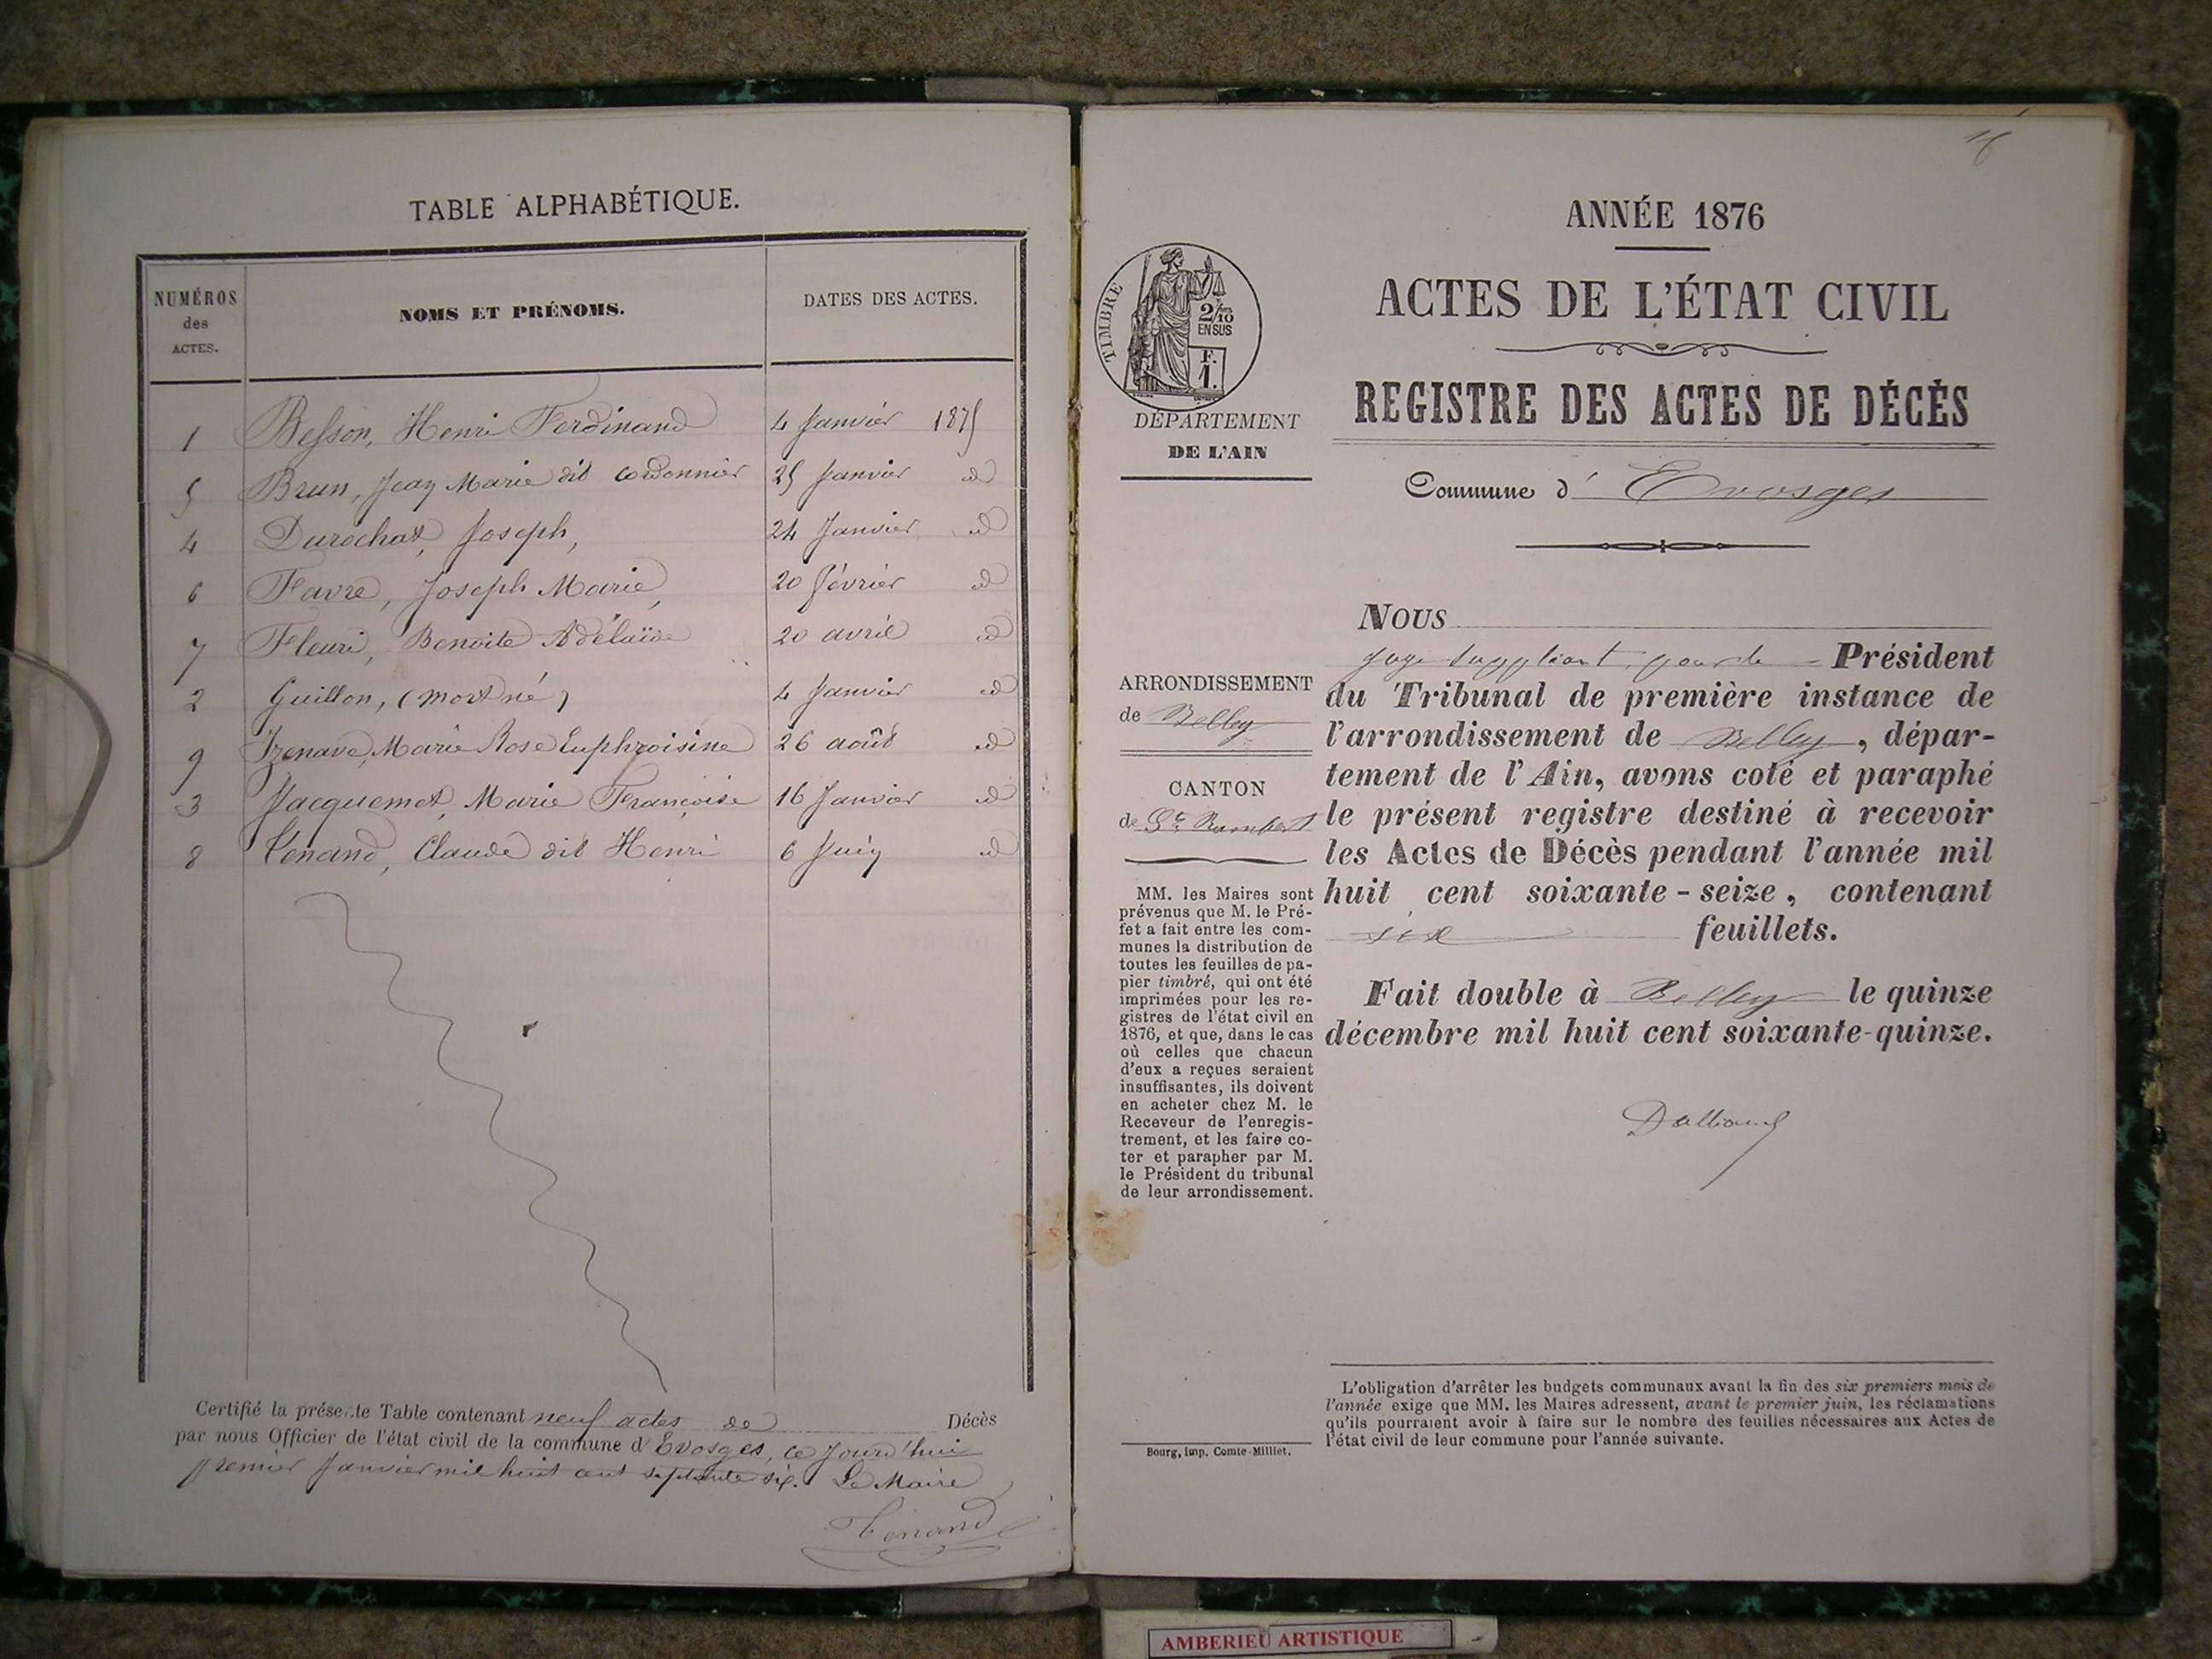 TABLE ALPHABÉTIQUE.
NUMÉROS des ACTES. NOMS ET PRÉNOMS. DATES DES ACTES.
1 Besson, Henri Ferdinand 4 Janvier 1875
5 Brun, Jean Marie dit cordonnier 25 Janvier id
4 Durochat, Joseph, 24 Janvier id
6 Favre, Joseph Marie, 20 février id
7 Fleuri, Benoite Adélaïde 20 avril id
2 Guillon, (mort né) 4 Janvier id
9 Izenave, Marie Rose Euphroisine 26 août id
3 Jacquemet, Marie Françoise 16 Janvier id
8 Tenand, Claude dit Henri 6 Juin id
Certifié la présente Table contenant neuf actes de Décès
par nous Officier de l'état civil de la commune d'Evosges, ce jourd'hui
premier Janvier mil huit cent septante six. Le Maire
Tenand
16
ANNÉE 1876
ACTES DE L'ÉTAT CIVIL
REGISTRE DES ACTES DE DÉCÈS
Commune d' Evosges
TIMBRE
2/10
EN SUS
F.
1.
DÉPARTEMENT
DE L'AIN
ARRONDISSEMENT
de Belley
CANTON
de St Rambert
MM. les Maires sont
prévenus que M. le Pré-
fet a fait entre les com-
munes la distribution de
toutes les feuilles de pa-
pier timbré, qui ont été
imprimées pour les re-
gistres de l'état civil en
1876, et que, dans le cas
où celles que chacun
d'eux a reçues seraient
insuffisantes, ils doivent
en acheter chez M. le
Receveur de l'enregis-
trement, et les faire co-
ter et parapher par M.
le Président du tribunal
de leur arrondissement.
Bourg, imp. Comte-Milliet.
NOUS
juge suppléant, pour le Président
du Tribunal de première instance de
l'arrondissement de Belley, dépar-
tement de l'Ain, avons coté et paraphé
le présent registre destiné à recevoir
les Actes de Décès pendant l'année mil
huit cent soixante-seize, contenant
six feuillets.
Fait double à Belley le quinze
décembre mil huit cent soixante-quinze.
L'obligation d'arrêter les budgets communaux avant la fin des six premiers mois de
l'année exige que MM. les Maires adressent, avant le premier juin, les réclamations
qu'ils pourraient avoir à faire sur le nombre des feuilles nécessaires aux Actes de
l'état civil de leur commune pour l'année suivante.
AMBERIEU ARTISTIQUE